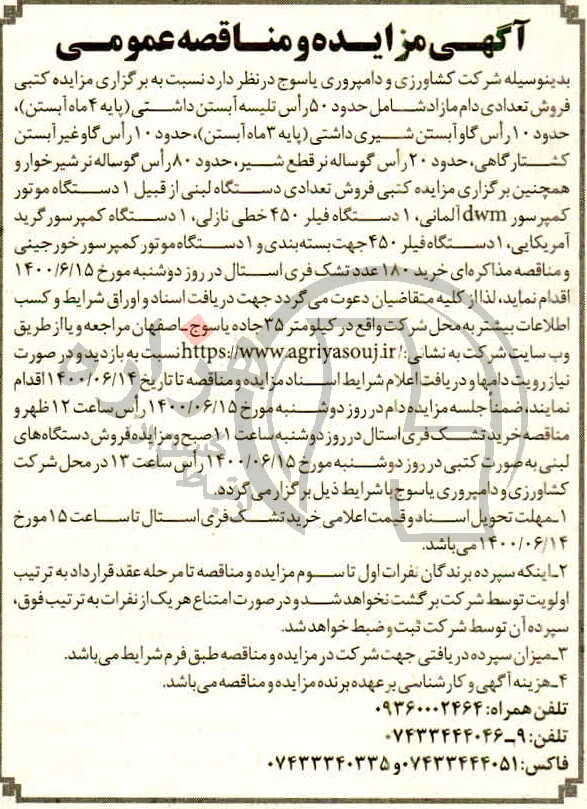 آگهـی مزایـده و مناقصه عمومـی
بدینوسیله شرکت کشاورزی و دامپروری یاسوج در نظر دارد نسبت به برگزاری مزایده کتبی
فروش تعدادی دام مازاد شامل حدود ۵۰ رأس تلیسه آبستن داشتی (پایه ۴ ماه آبستن)،
حدود ۱۰ رأس گاو آبستن شیری داشتی (پایه ۳ ماه آبستن)، حدود ۱۰ رأس گاو غیر آبستن
کشتارگاهی، حدود ۲۰ رأس گوساله نر قطع شیر، حدود ۸۰ رأس گوساله نر شیرخوار و
همچنین برگزاری مزایده کتبی فروش تعدادی دستگاه لبنی از قبیل ۱ دستگاه موتور
کمپرسور dwm آلمانی، ۱ دستگاه فیلر ۴۵۰ خطی نازلی، ۱ دستگاه کمپرسور گرید
آمریکایی، ۱ دستگاه فیلر ۴۵۰ جهت بسته‌بندی و ۱ دستگاه موتور کمپرسور خورجینی
و مناقصه مذاکره‌ای خرید ۱۸۰ عدد تشک فری استال در روز دوشنبه مورخ ۱۴۰۰/۶/۱۵
اقدام نماید، لذا از کلیه متقاضیان دعوت می‌گردد جهت دریافت اسناد و اوراق شرایط و کسب
اطلاعات بیشتر به محل شرکت واقع در کیلومتر ۳۵ جاده یاسوج ـ اصفهان مراجعه و یا از طریق
وب سایت شرکت به نشانی: https://www.agriyasouj.ir/ نسبت به بازدید و در صورت
نیاز رویت دامها و دریافت اعلام شرایط اسناد مزایده و مناقصه تا تاریخ ۱۴۰۰/۰۶/۱۴ اقدام
نمایند، ضمناً جلسه مزایده دام در روز دوشنبه مورخ ۱۴۰۰/۰۶/۱۵ رأس ساعت ۱۲ ظهر و
مناقصه خرید تشک فری استال در روز دوشنبه ساعت ۱۱ صبح و مزایده فروش دستگاه‌های
لبنی به صورت کتبی در روز دوشنبه مورخ ۱۴۰۰/۰۶/۱۵ رأس ساعت ۱۳ در محل شرکت
کشاورزی و دامپروری یاسوج با شرایط ذیل برگزار می‌گردد.
۱ـ مهلت تحویل اسناد و قیمت اعلامی خرید تشک فری استال تا ساعت ۱۵ مورخ
۱۴۰۰/۰۶/۱۴ می‌باشد.
۲ـ اینکه سپرده برندگان نفرات اول تا سوم مزایده و مناقصه تا مرحله عقد قرارداد به ترتیب
اولویت توسط شرکت برگشت نخواهد شد و در صورت امتناع هر یک از نفرات به ترتیب فوق،
سپرده آن توسط شرکت ثبت و ضبط خواهد شد.
۳ـ میزان سپرده دریافتی جهت شرکت در مزایده و مناقصه طبق فرم شرایط می‌باشد.
۴ـ هزینه آگهی و کارشناسی بر عهده برنده مزایده و مناقصه می‌باشد.
تلفن همراه: ۰۹۳۶۰۰۰۲۴۶۴
تلفن: ۹ـ۰۷۴۳۳۴۴۴۰۴۶
فاکس: ۰۷۴۳۳۴۴۴۰۵۱ و ۰۷۴۳۳۳۴۰۳۳۵